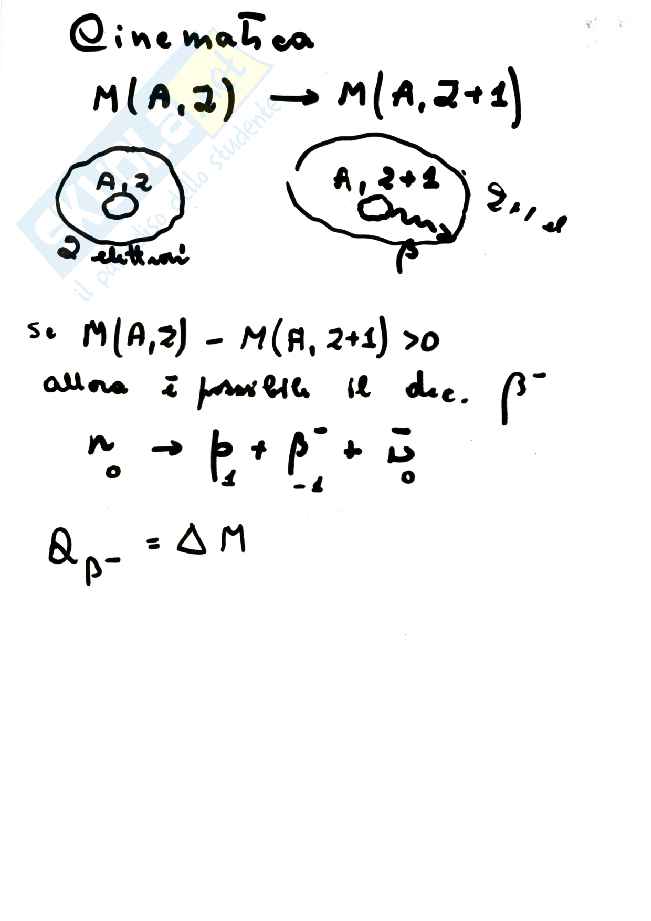 Cinematica
M(A,Z) → M(A,Z+1)
A,Z
Z elettroni
A, Z+1
Z+1 el
β
se M(A,Z) - M(A,Z+1) >0
allora è possibile il dec. β⁻
n₀ → p₁ + β⁻₋₁ + ν̄₀
Q_β⁻ = ΔM
skuola.net
il paradiso dello studente